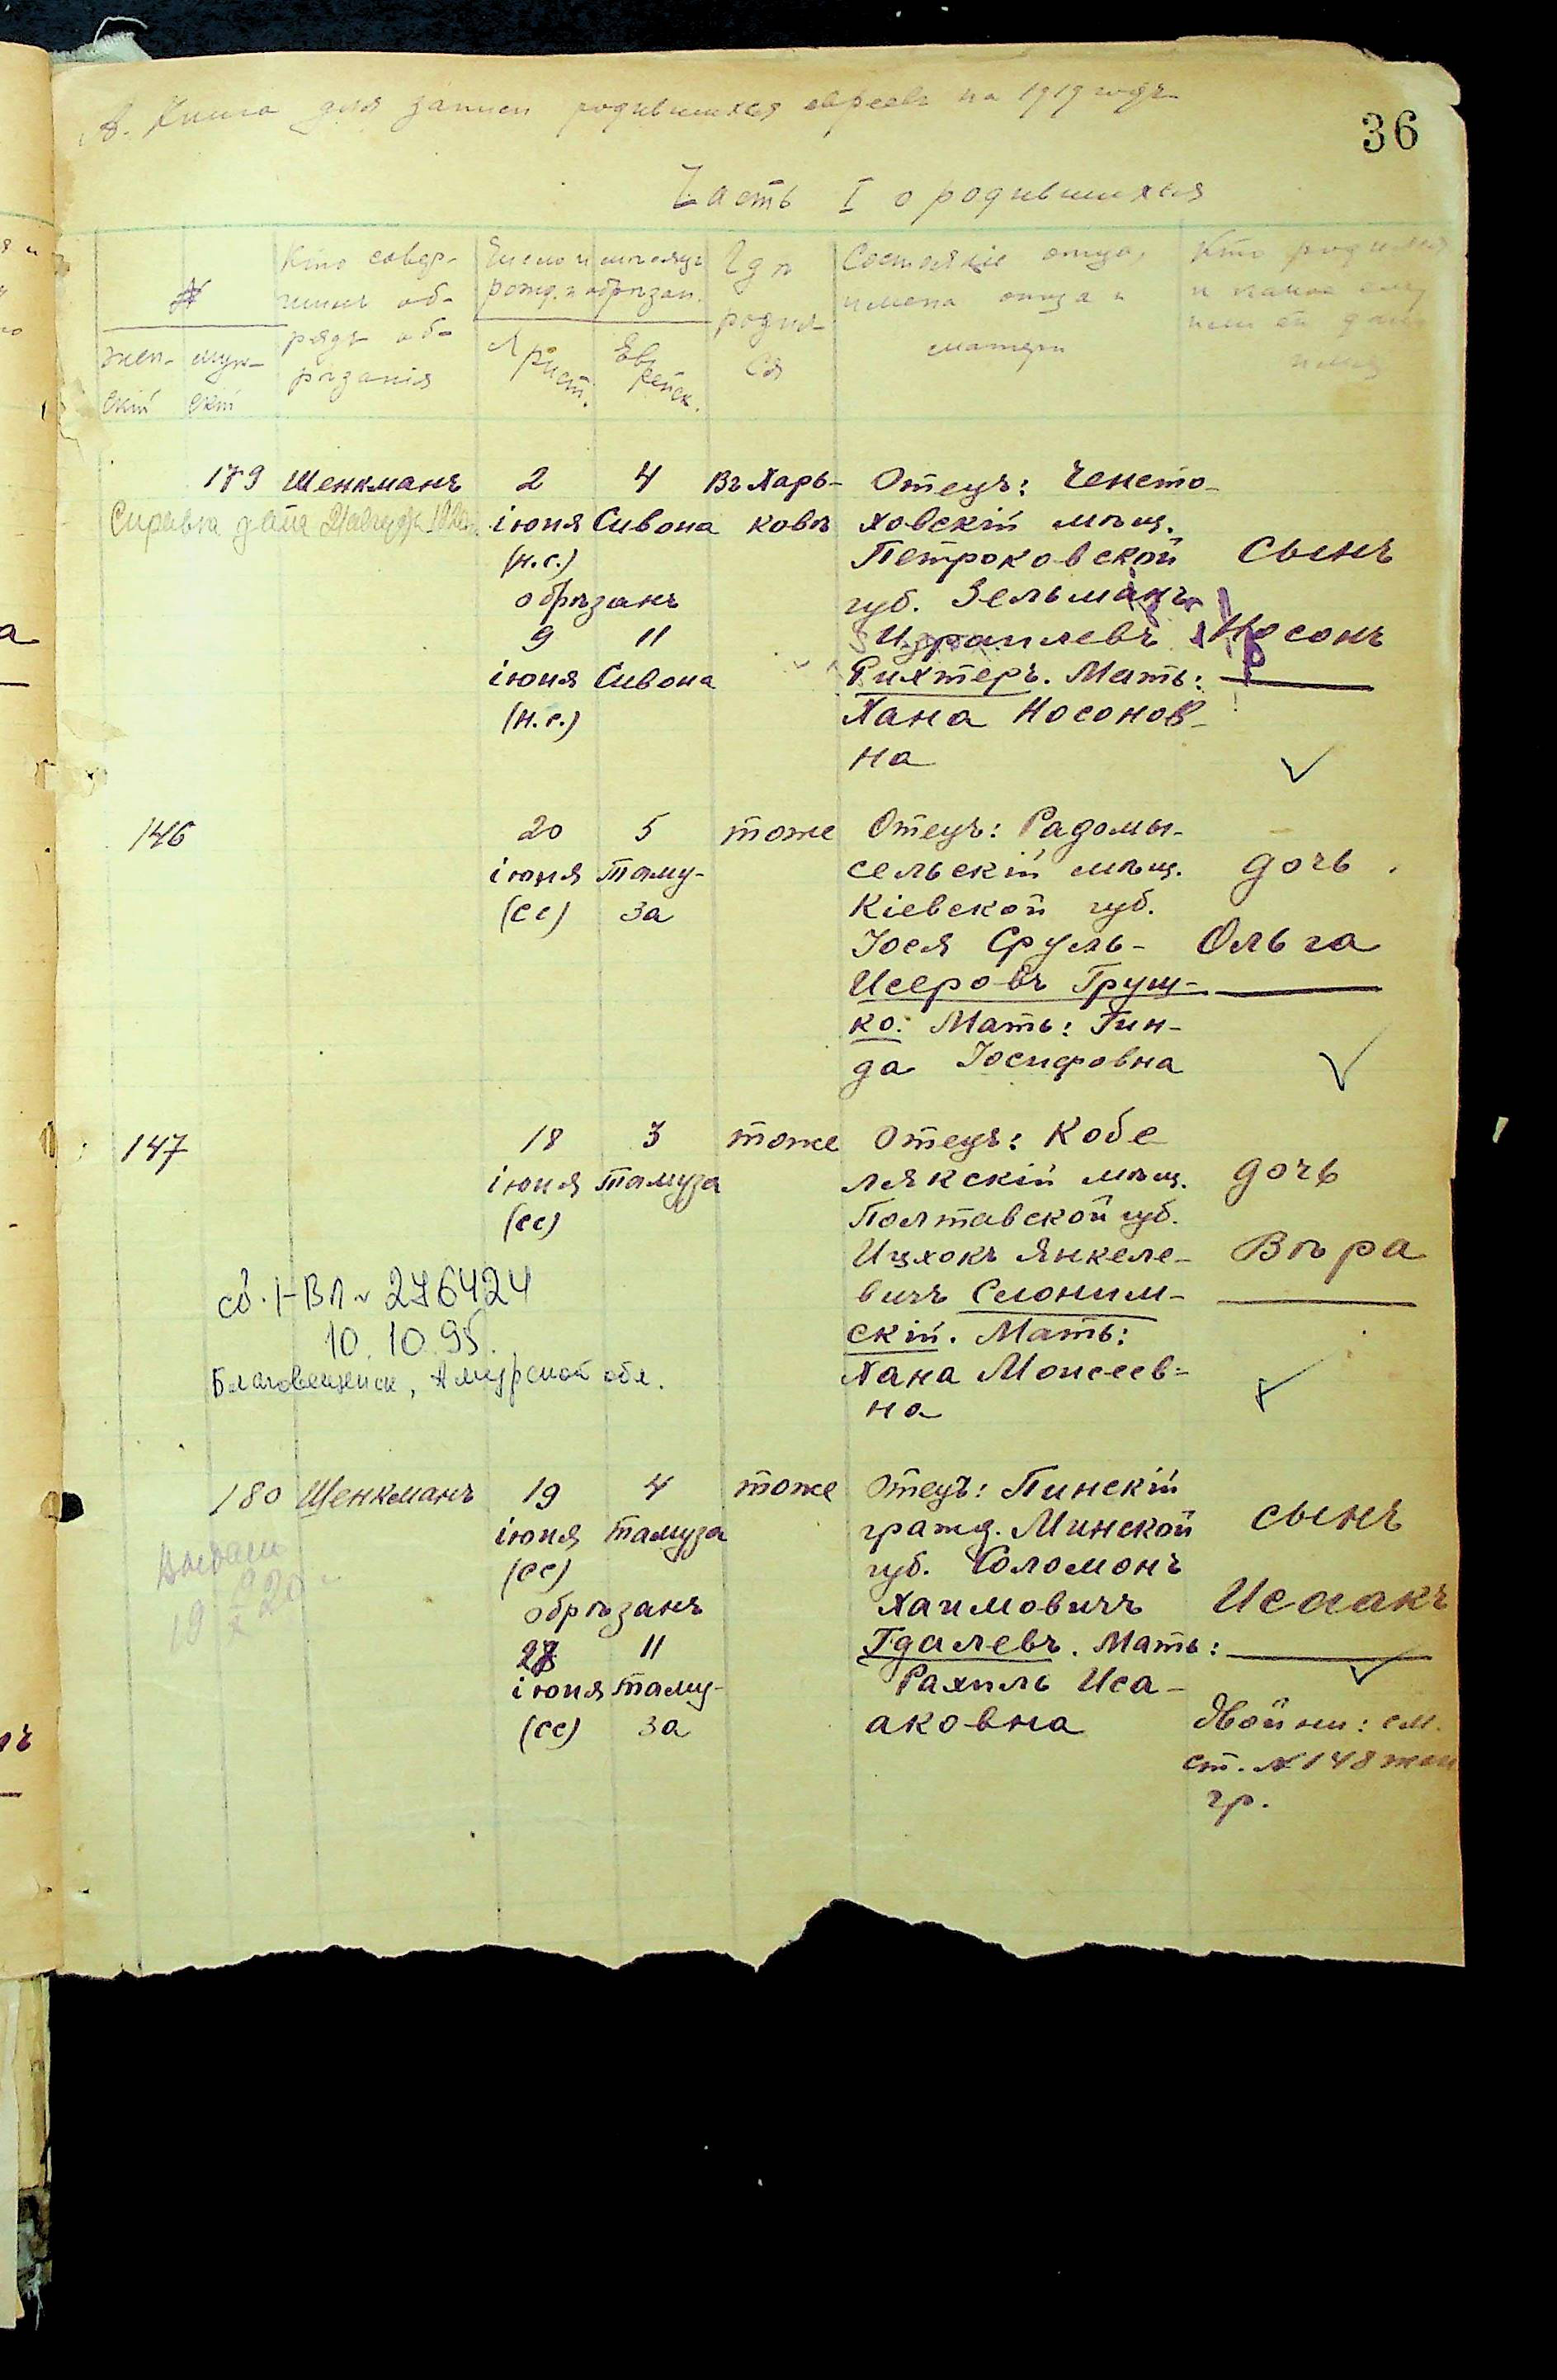 А. Книга для записи родившихся евреевъ на 1919 годъ
36
Часть I о родившихся
№
жен-
скій
муж-
скій
Кто совер-
шилъ об-
рядъ об-
рѣзанія
Число и мѣсяцъ
рожд. и обрѣзан.
Христ.
Еврейск.
Гдѣ
родил-
ся
Состояніе отца,
имена отца и
матери
Кто родился
и какое ему
или ей дано
имя
179 Шенкманъ
Справка дана
2
іюня
(н.с.)
обрѣзанъ
9
іюня
(н.с.)
4
Сивона
11
Сивона
Въ Харь-
ковѣ
Отецъ: Ченсто-
ховскій мѣщ.
Петроковской
губ. Зельманъ
Израилевъ
Рихтеръ. Мать:
Хана Носонов-
на
сынъ
Носонъ
146
20
іюня
(сс)
5
Таму-
за
тоже
Отецъ: Радомы-
сельскій мѣщ.
Кіевской губ.
Іося Сруль-
Исеровъ Грущ-
ко. Мать: Гин-
да Іосифовна
дочь
Ольга
147
18
іюня
(сс)
3
тамуза
тоже
Отецъ: Кобе
лякскій мѣщ.
Полтавской губ.
Ицхокъ Янкеле-
вичъ Слоним-
скій. Мать:
Хана Моисеев-
на
дочь
Вѣра
276424
10.10.95.
Благовещенск, Амурской обл.
180 Шенкманъ
19
іюня
(сс)
обрѣзанъ
іюня
(сс)
4
тамуза
11
таму-
за
тоже
Отецъ: Пинскій
гражд. Минской
губ. Соломонъ
Хаимовичъ
Гдалевъ. Мать:
Рахиль Иса-
аковна
сынъ
Исаакъ
двойни: см.
ст. № 148 жен
гр.